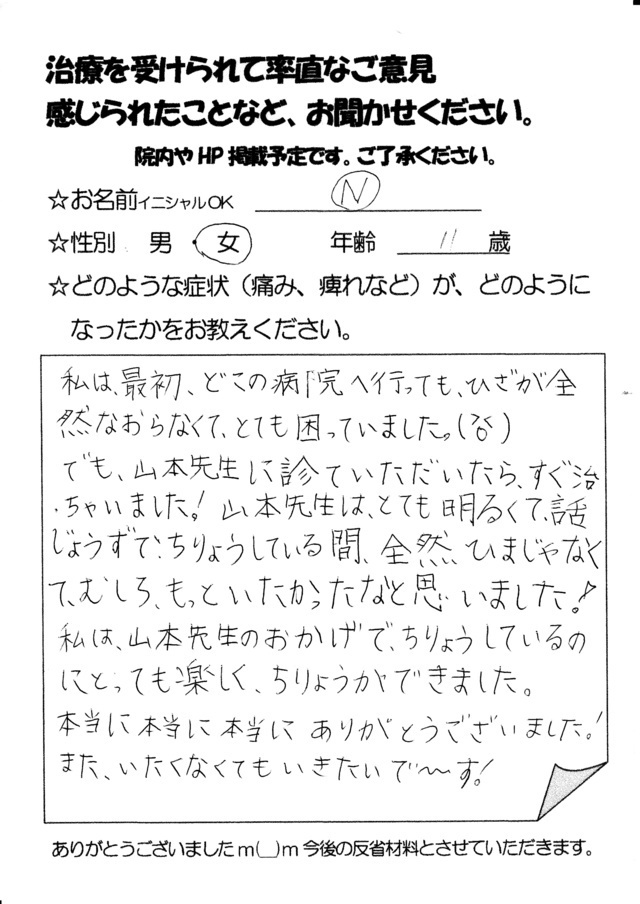 治療を受けられて率直なご意見
感じられたことなど、お聞かせください。
院内やHP掲載予定です。ご了承ください。
☆お名前イニシャルOK N
☆性別 男・女 年齢 11 歳
☆どのような症状（痛み、痺れなど）が、どのように
なったかをお教えください。
私は、最初、どこの病院へ行っても、ひざが全
然なおらなくて、とても困っていました。(泣)
でも、山本先生に診ていただいたら、すぐ治
っちゃいました！山本先生は、とても明るくて、話
じょうずで、ちりょうしている間、全然、ひまじゃなく
て、むしろ、もっといたかったなと思いました！
私は、山本先生のおかげで、ちりょうしているの
にとっても楽しく、ちりょうができました。
本当に本当に本当にありがとうございました！
また、いたくなくてもいきたいで〜す！
ありがとうございましたm(__)m今後の反省材料とさせていただきます。